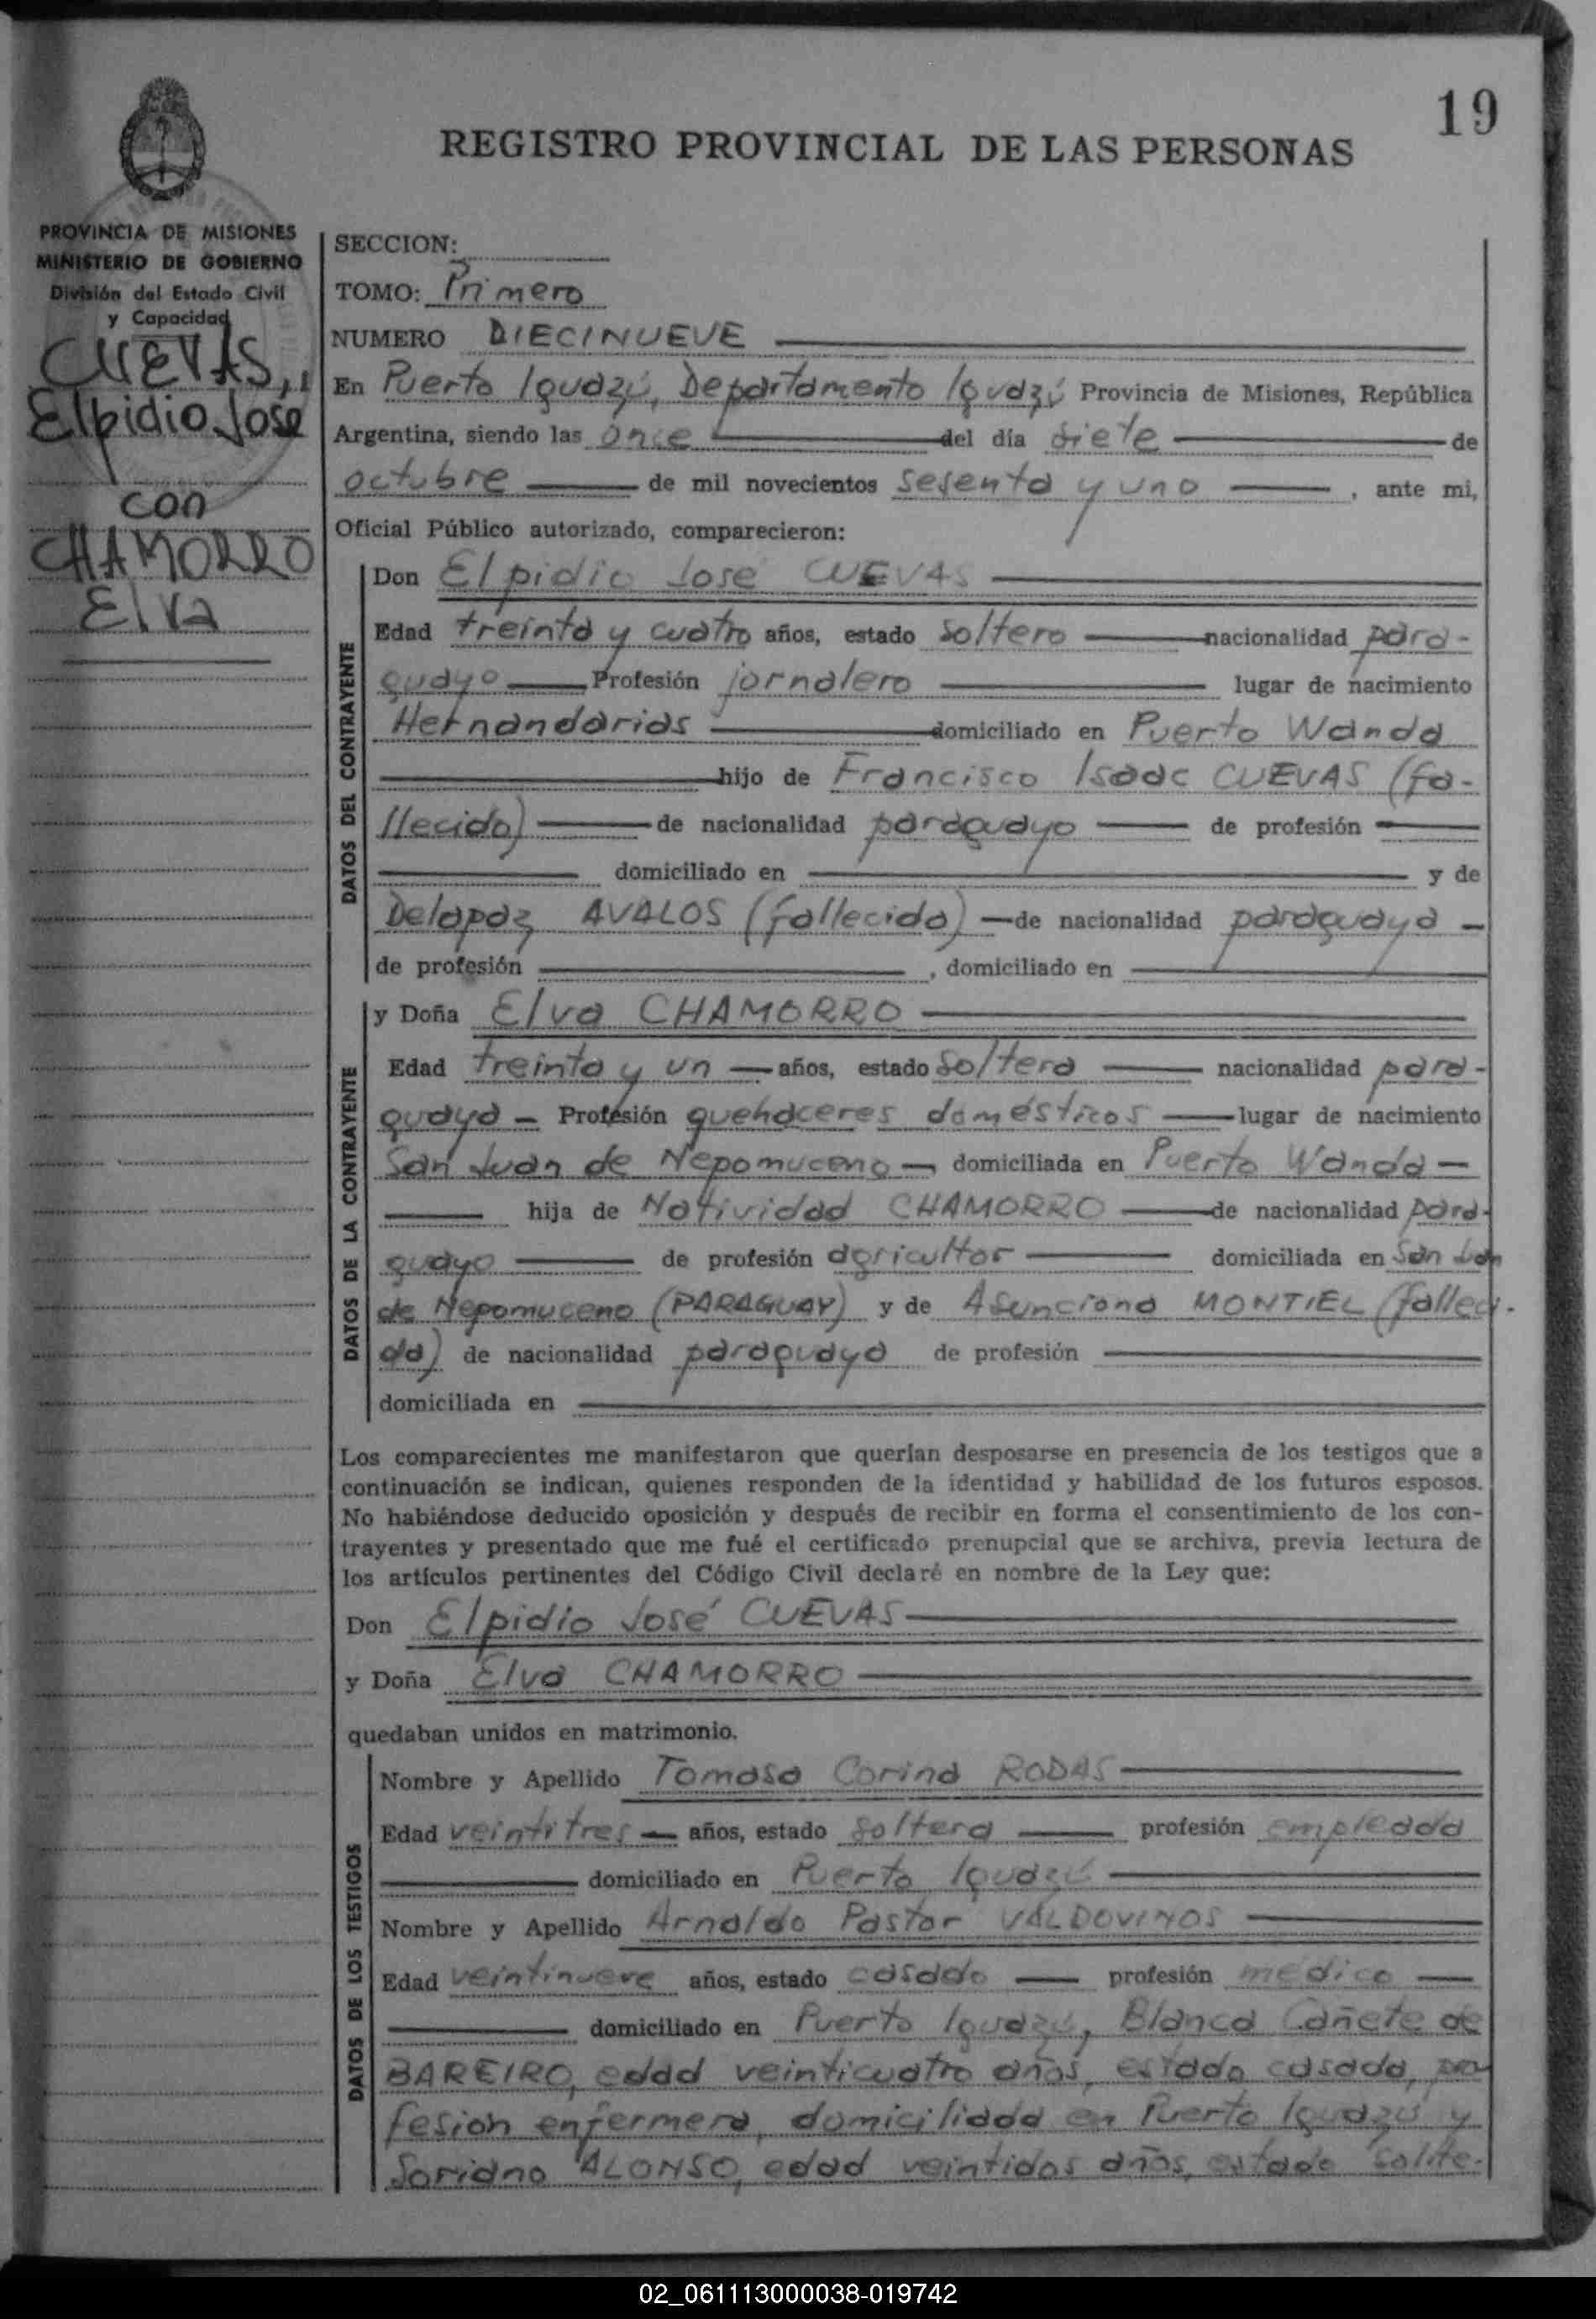 19
REGISTRO PROVINCIAL DE LAS PERSONAS
PROVINCIA DE MISIONES
MINISTERIO DE GOBIERNO
División del Estado Civil
y Capacidad
CUEVAS,
Elpidio Jose
con
CHAMORRO
Elva
SECCION:
TOMO: Primero
NUMERO DIECINUEVE
En Puerto Iguazú, Departamento Iguazú Provincia de Misiones, República
Argentina, siendo las once del día siete de
octubre de mil novecientos sesenta y uno, ante mi,
Oficial Público autorizado, comparecieron:
DATOS DEL CONTRAYENTE
Don Elpidio José CUEVAS
Edad treinta y cuatro años, estado soltero nacionalidad para-
guayo Profesión jornalero lugar de nacimiento
Hernandarias domiciliado en Puerto Wanda
hijo de Francisco Isaac CUEVAS (fa-
llecido) de nacionalidad paraguayo de profesión
domiciliado en y de
Delapaz AVALOS (fallecida) de nacionalidad paraguaya
de profesión , domiciliado en
DATOS DE LA CONTRAYENTE
y Doña Elva CHAMORRO
Edad treinta y un años, estado soltera nacionalidad para-
guaya Profesión quehaceres domésticos lugar de nacimiento
San Juan de Nepomuceno domiciliada en Puerto Wanda
hija de Natividad CHAMORRO de nacionalidad para-
guayo de profesión agricultor domiciliada en San Juan
de Nepomuceno (PARAGUAY) y de Asunciona MONTIEL (falleci-
da) de nacionalidad paraguaya de profesión
domiciliada en
Los comparecientes me manifestaron que querían desposarse en presencia de los testigos que a
continuación se indican, quienes responden de la identidad y habilidad de los futuros esposos.
No habiéndose deducido oposición y después de recibir en forma el consentimiento de los con-
trayentes y presentado que me fué el certificado prenupcial que se archiva, previa lectura de
los artículos pertinentes del Código Civil declaré en nombre de la Ley que:
Don Elpidio José CUEVAS
y Doña Elva CHAMORRO
quedaban unidos en matrimonio.
DATOS DE LOS TESTIGOS
Nombre y Apellido Tomasa Corina RODAS
Edad veintitres años, estado soltera profesión empleada
domiciliado en Puerto Iguazú
Nombre y Apellido Arnaldo Pastor VALDOVINOS
Edad veintinueve años, estado casado profesión médico
domiciliado en Puerto Iguazú, Blanca Cañete de
BAREIRO, edad veinticuatro años, estado casada, pro
fesión enfermera, domiciliada en Puerto Iguazú y
Soriano ALONSO, edad veintidos años, estado solte-
02_061113000038-019742